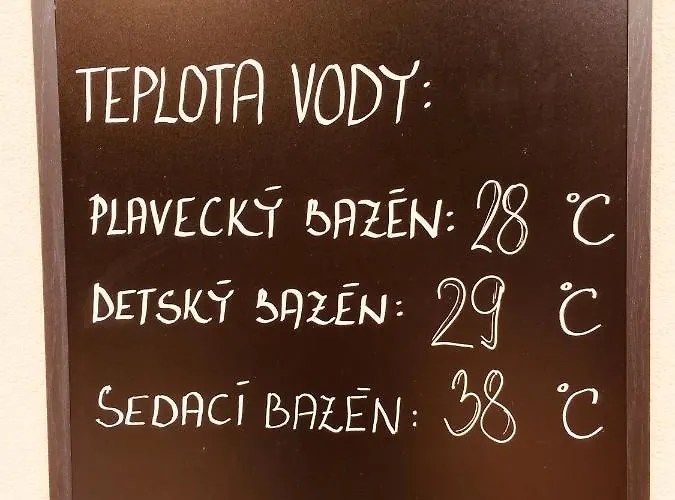 TEPLOTA VODY:
PLAVECKÝ BAZÉN: 28 °C
DETSKÝ BAZÉN: 29 °C
SEDACÍ BAZÉN: 38 °C